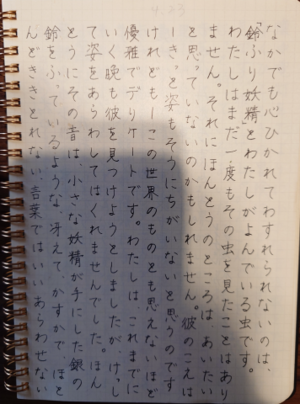 なかでも心ひかれてわすれられないのは、
「鈴ふり妖精」とわたしがよんでいる虫です。
わたしはまだ一度もその虫を見たことはあり
ません。それにほんとうのところは、あいたい
と思っていないのかもしれません。彼のこえは
きっと姿もそうにちがいないと思うのです
けれどもーこの世界のものとも思えないほど
優雅でデリケートです。わたしは、これまでに
いく晩も彼を見つけようとしましたが、けっし
て姿をあらわしてはくれませんでした。ほん
とうにその音は、小さな妖精が手にした銀の
鈴をふっているような、冴えて、かすかで、ほと
んどききとれない、言葉ではいいあらわせない